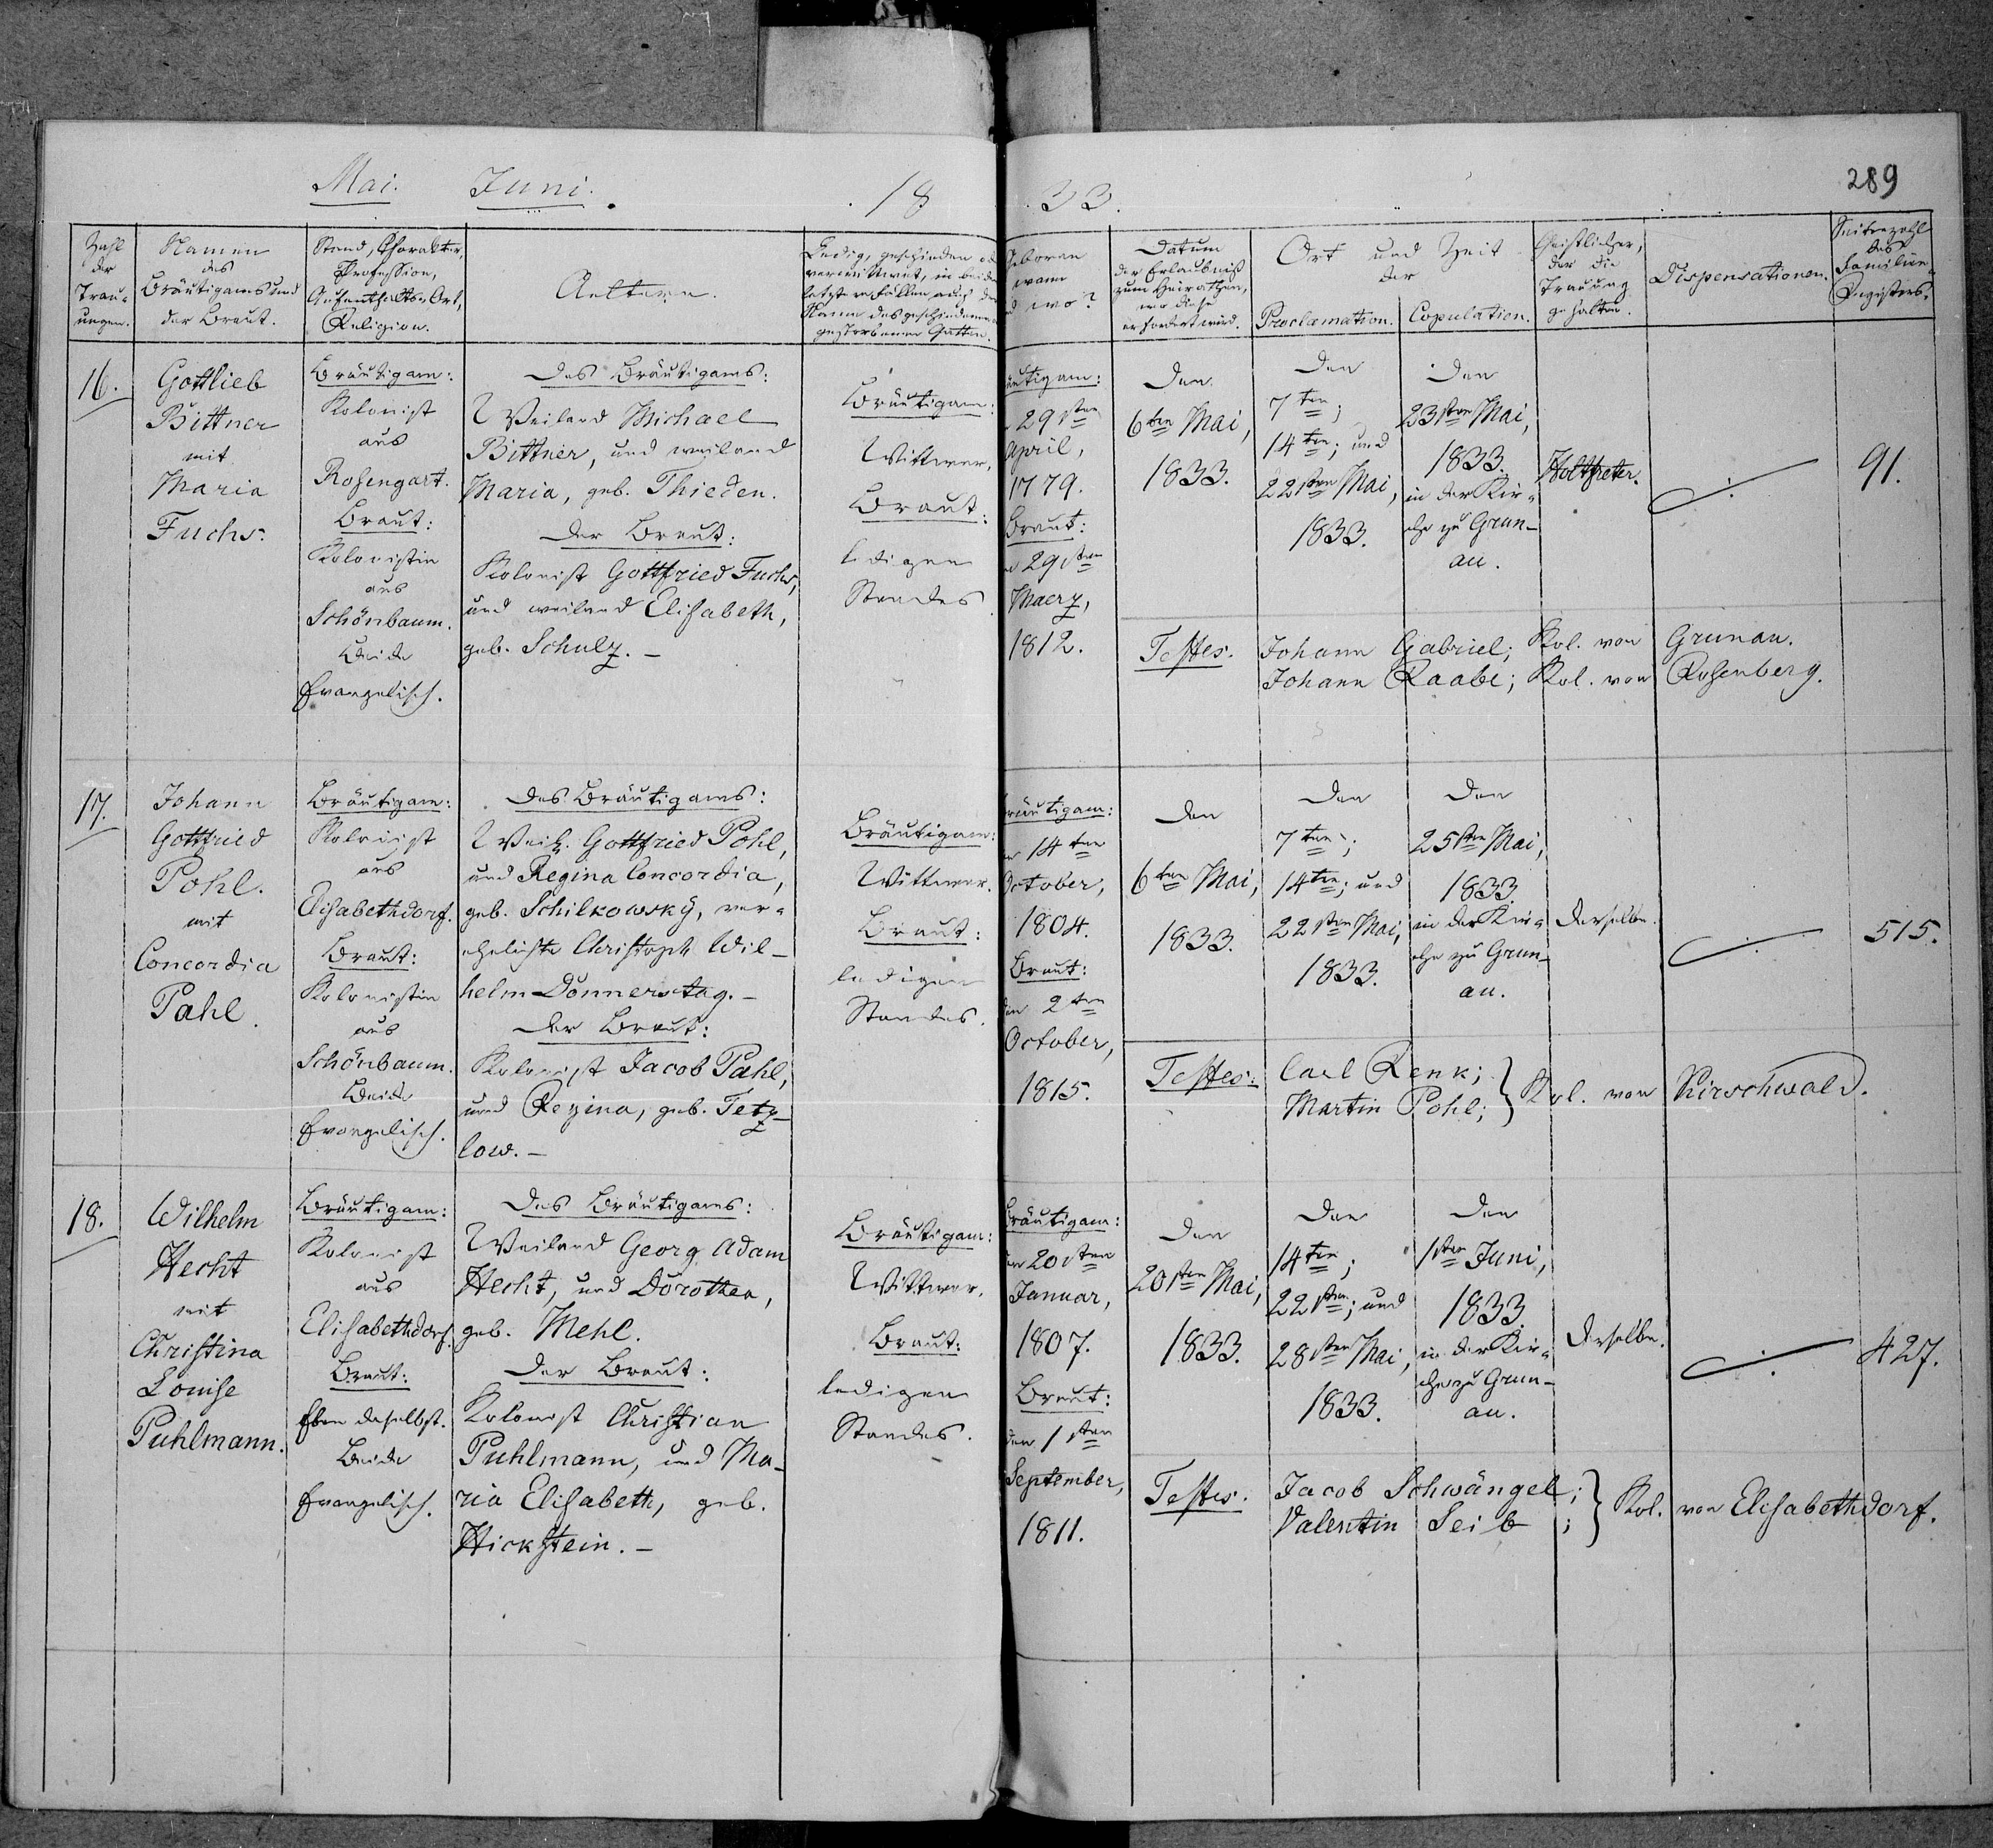 Mai. Juni. 18 33.
289
Zahl
der
Trau-
ungen.
Namen
des
Bräutigams und
der Braut.
Stand, Charakter,
Profession,
Aufenthalts-Ort,
Religion.
Aeltern.
Ledig, geschieden od
verwittwet, in beiden
letztern Fällen auch der
Name des geschiedenen
gestorbenen Gatten.
Geboren
wann
d wo?
Datum
der Erlaubniß
zum Heirathen,
wo diese
erfordert wird.
Ort und Zeit
der
Proclamation. Copulation.
Geistlicher,
der die
Trauung
gehalten.
Dispensationen.
Seitenzahl
des
Familien-
Registers.
16.
Gottlieb
Bittner
mit
Maria
Fuchs.
Bräutigam:
Kolonist
aus
Rosengart.
Braut:
Kolonistin
aus
Schönbaum.
Beide
Evangelisch.
Des Bräutigams:
Weiland Michael
Bittner, und weiland
Maria, geb. Thieden.
Der Braut:
Kolonist Gottfried Fuchs,
und weiland Elisabeth,
geb. Schulz. –
Bräutigam:
Wittwer.
Braut:
ledigen
Standes.
äutigam:
29sten
April,
1779.
Braut:
29sten
Maerz,
1812.
Den
6ten Mai,
1833.
Den
7ten;
14ten; und
22sten Mai,
1833.
Den
23sten Mai,
1833.
in der Kir-
che zu Grun-
au.
Holtfreter.
91.
Testes. Johann Gabriel; Kol. von Grunau.
Johann Raabe; Kol. von Rosenberg.
17.
Johann
Gottfried
Pohl.
mit
Concordia
Pahl.
Bräutigam:
Kolonist
aus
Elisabethdorf.
Braut:
Kolonistin
aus
Schönbaum.
Beide
Evangelisch.
Des Bräutigams:
Weil. Gottfried Pohl,
und Regina Concordia,
geb. Schilkowsky, ver-
ehelichte Christoph Wil-
helm Donnerstag. –
Der Braut:
Kolonist Jacob Pahl,
und Regina, geb. Tetz-
low. –
Bräutigam:
Wittwer.
Braut:
ledigen
Standes.
räutigam:
14ten
October,
1804.
Braut:
den 2ten
October,
1815.
Den
6ten Mai,
1833.
Den
7ten;
14ten; und
22sten Mai,
1833.
Den
25sten Mai,
1833.
in der Kir-
che zu Grun-
au.
Derselbe.
515.
Testes: Carl Renk;
Martin Pohl; } Kol. von Kirschwald.
18.
Wilhelm
Hecht
mit
Christina
Louise
Puhlmann.
Bräutigam:
Kolonist
aus
Elisabethdorf.
Braut:
Eben daselbst.
Beide
Evangelisch.
Des Bräutigams:
Weiland Georg Adam
Hecht, und Dorothea,
geb. Mehl.
Der Braut:
Kolonist Christian
Puhlmann, und Ma-
ria Elisabeth, geb.
Hickstein. –
Bräutigam:
Wittwer.
Braut:
ledigen
Standes.
Bräutigam:
20sten
Januar,
1807.
Braut:
den 1sten
September,
1811.
Den
20sten Mai,
1833.
Den
14ten;
22sten; und
28sten Mai,
1833.
Den
1sten Juni,
1833.
in der Kir-
che zu Grun-
au.
Derselbe.
427.
Testes. Jacob Schwängel;
Valentin Seib; } Kol. von Elisabethdorf.